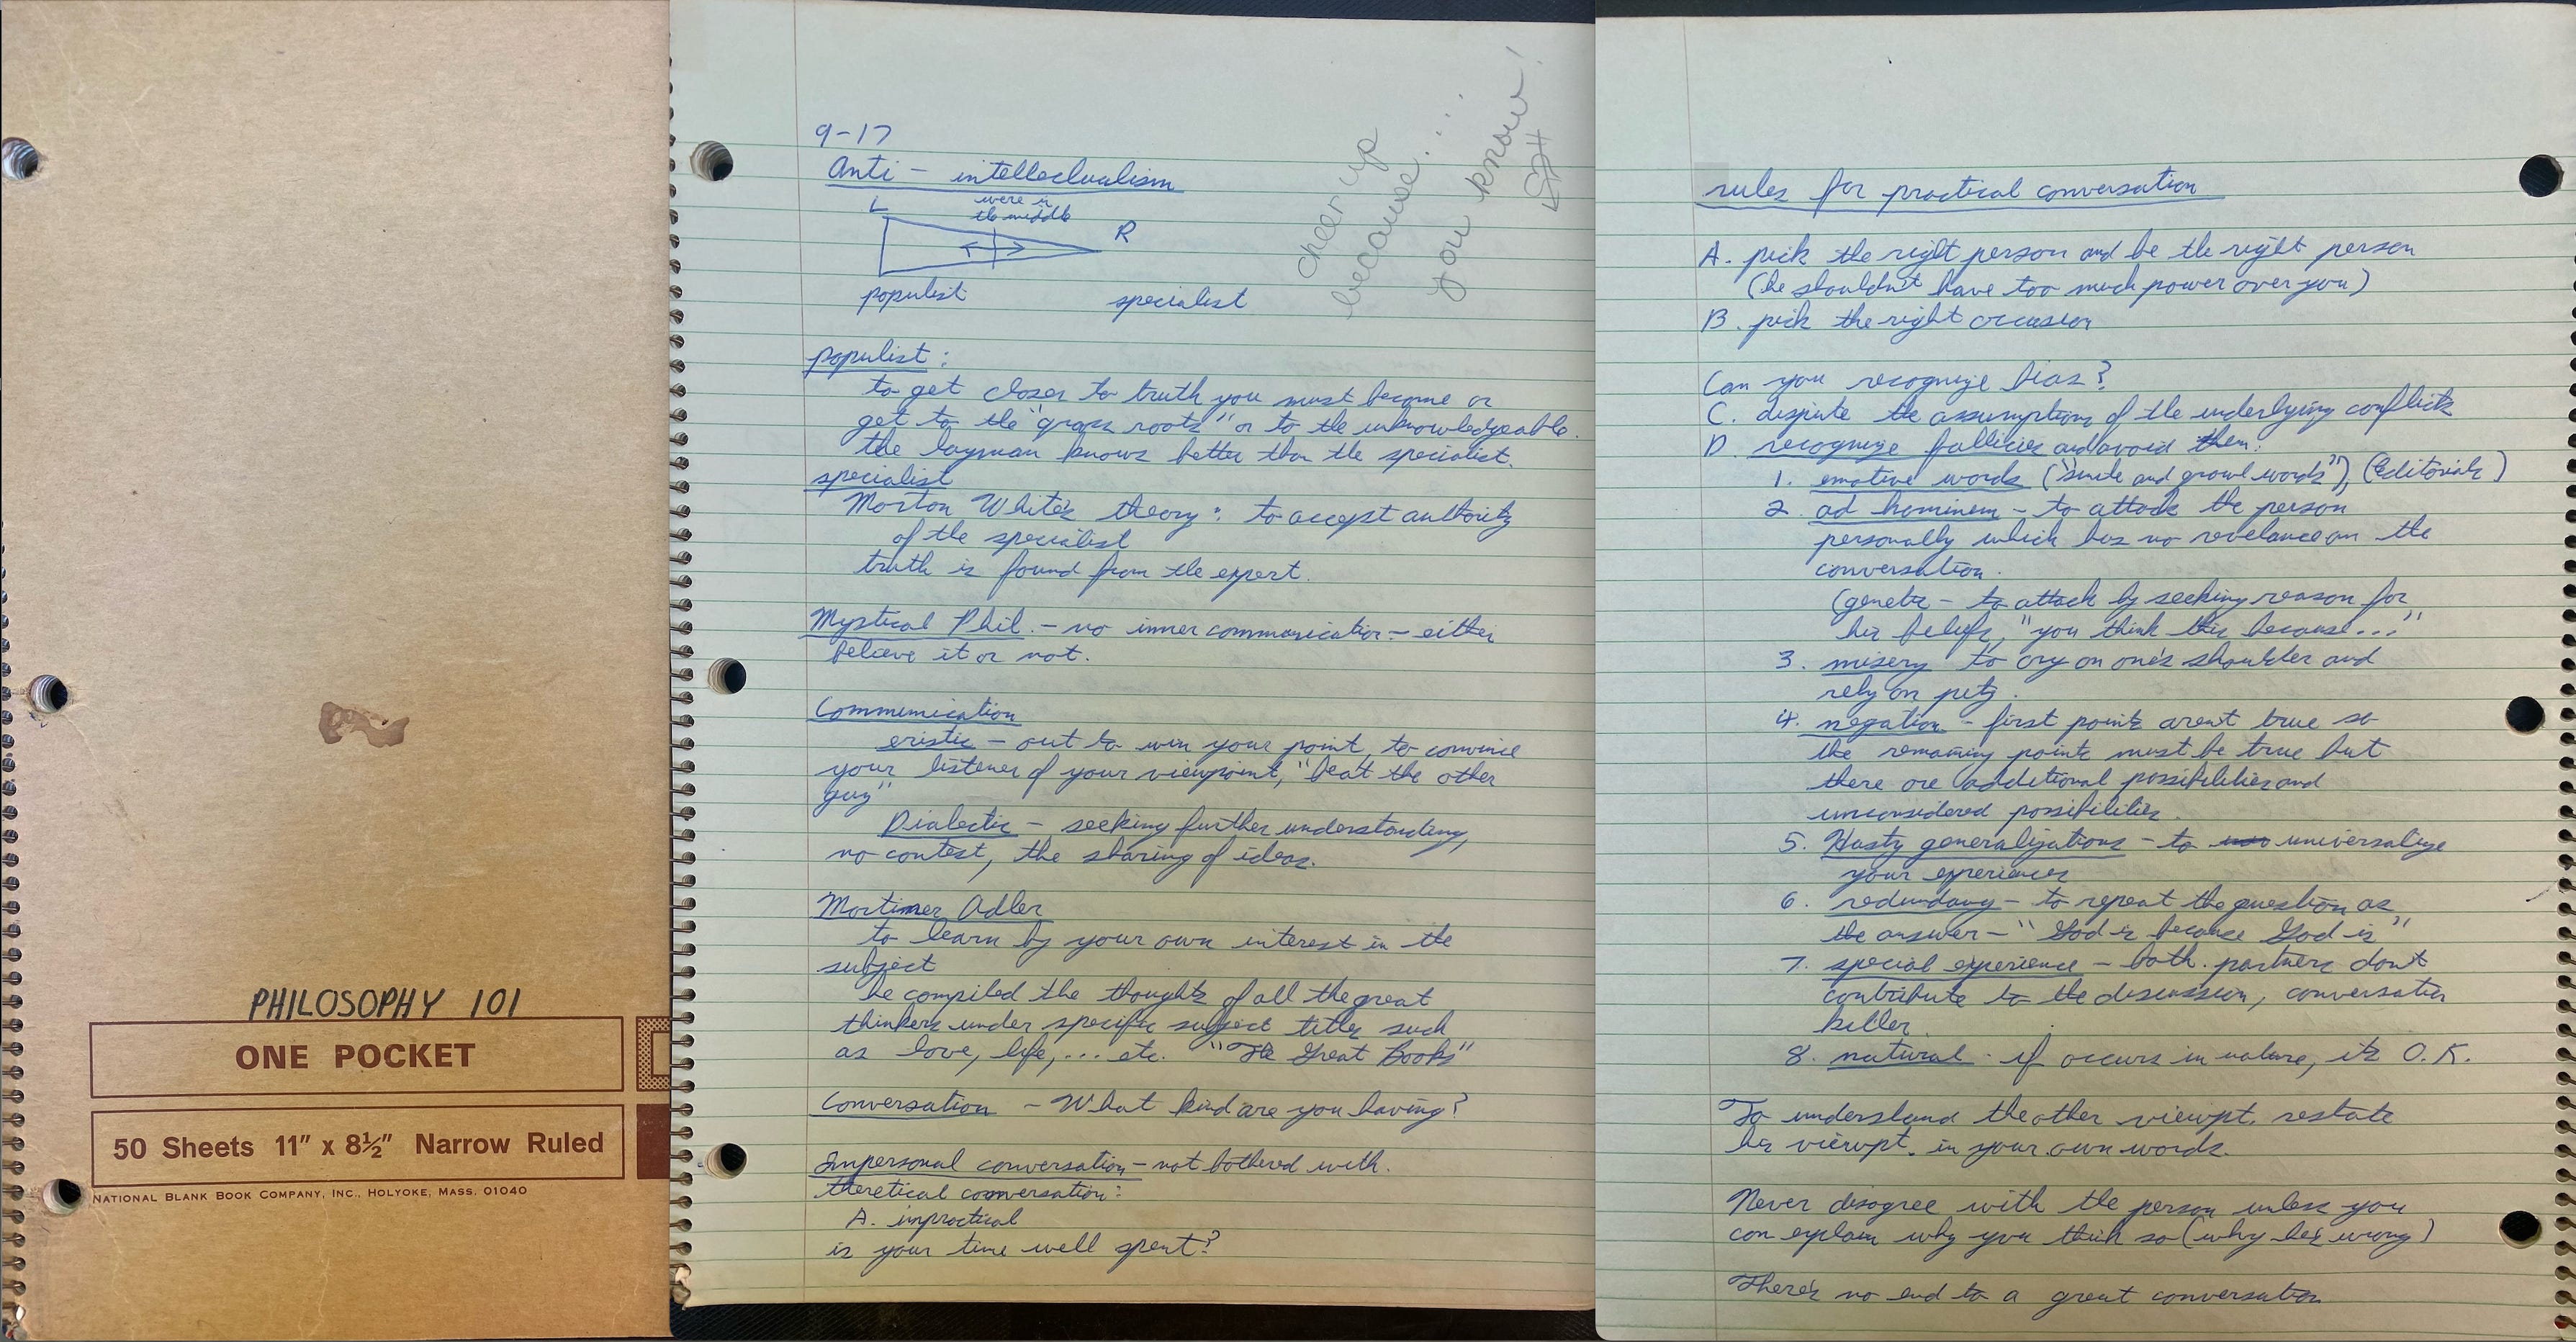 PHILOSOPHY 101
ONE POCKET
50 Sheets 11" x 8½" Narrow Ruled
NATIONAL BLANK BOOK COMPANY, INC., HOLYOKE, MASS. 01040
9-17
Anti - intellectualism
were in
the middle
L
R
populist
specialist
cheer up
because...
you know!
populist:
to get closer to truth you must become or
get to the "grass roots" or to the unknowledgeable.
the layman knows better than the specialist.
specialist
Morton White's theory: to accept authority
of the specialist
truth is found from the expert.
Mystical Phil. - no inner communication - either
believe it or not.
Communication
eristic - out to win your point, to convince
your listener of your viewpoint, "beat the other
guy"
Dialectic - seeking further understanding,
no contest, the sharing of ideas.
Mortimer Adler
to learn by your own interest in the
subject
he compiled the thoughts of all the great
thinkers under specific subject titles such
as love, life, ... etc. "The Great Books"
Conversation - What kind are you having?
Impersonal conversation - not bothered with.
theretical conversation:
A. impractical
is your time well spent?
rules for practical conversation
A. pick the right person and be the right person
(he shouldn't have too much power over you)
B. pick the right occasion
Can you recognize bias?
C. dispute the assumptions of the underlying conflicts
D. recognize fallicies and avoid them:
1. emotive words ("smile and growl words"), (Editorials)
2. ad hominem - to attack the person
personally which has no revelance on the
conversation.
(genetic - to attack by seeking reason for
his beliefs, "you think this because..."
3. misery to cry on one's shoulder and
rely on pity.
4. negation - first points aren't true so
the remaining points must be true but
there are additional possibilities and
unconsidered possibilities.
5. Hasty generalizations - to universalize
your experiences
6. redundancy - to repeat the question as
the answer - "God is because God is"
7. special experience - both partners don't
contribute to the discussion, conversation
killer.
8. natural - if occurs in nature, its O.K.
To understand the other viewpt. restate
his viewpt. in your own words.
Never disagree with the person unless you
can explain why you think so (why he's wrong)
There's no end to a great conversation